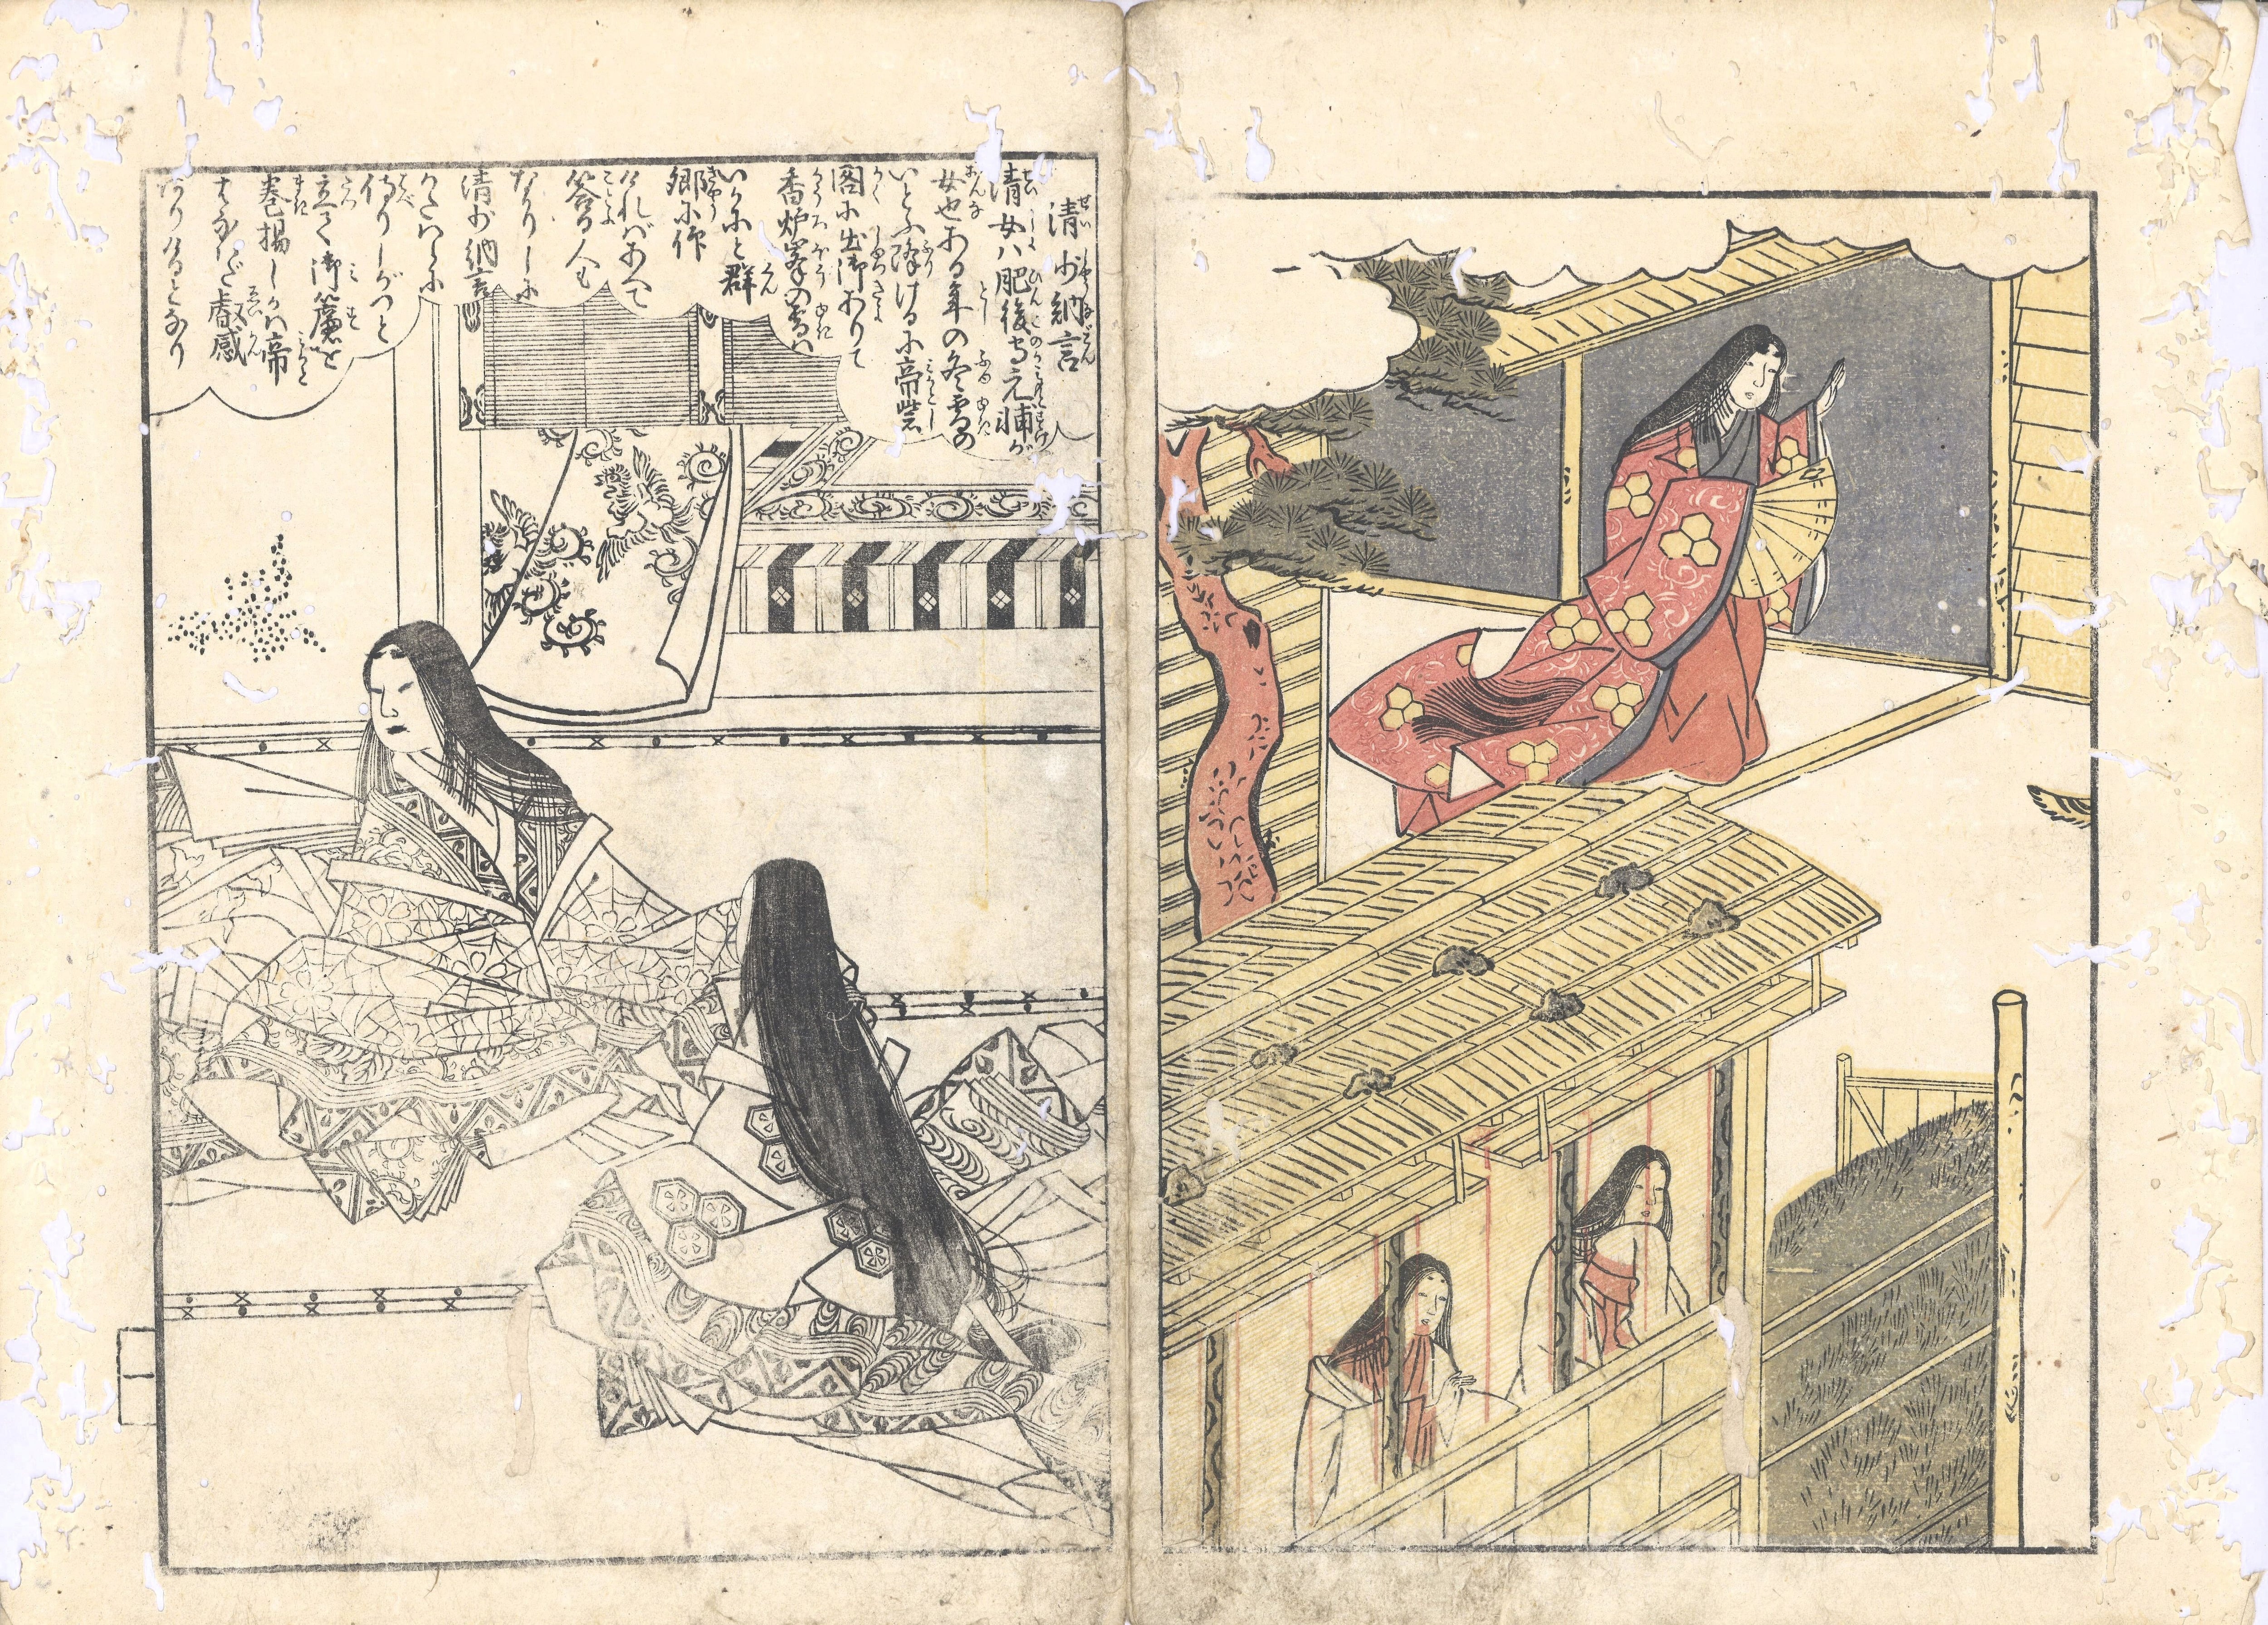 清少納言
清女ハ肥後守元輔が
女也ある年の冬雪の
いとふ降けるに帝紫
閣に出御ありて
香炉峯の雪ハ
いかにと群
卿に作
けれバあへて
答る人も
なかりしに
清少納言
かたハらに
侍りしがつと
立て御簾を
巻揚しかバ帝
はなはだ叡感
ありけるとなり